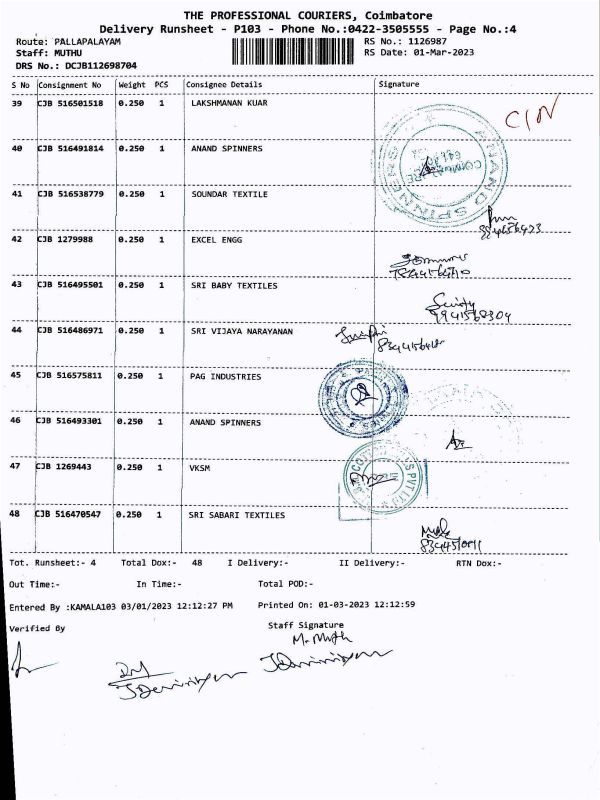 THE PROFESSIONAL COURIERS, Coimbatore
Delivery Runsheet - P103 - Phone No.:0422-3505555 - Page No.:4
Route: PALLAPALAYAM RS No.: 1126987
Staff: MUTHU RS Date: 01-Mar-2023
DRS No.: DCJB112698704
S No Consignment No Weight PCS Consignee Details Signature
39 CJB 516501518 0.250 1 LAKSHMANAN KUAR C/N
40 CJB 516491814 0.250 1 ANAND SPINNERS
ANAND SPINNERS
COIMBATORE
41 CJB 516538779 0.250 1 SOUNDAR TEXTILE
42 CJB 1279988 0.250 1 EXCEL ENGG
43 CJB 516495501 0.250 1 SRI BABY TEXTILES
44 CJB 516486971 0.250 1 SRI VIJAYA NARAYANAN
45 CJB 516575811 0.250 1 PAG INDUSTRIES
46 CJB 516493301 0.250 1 ANAND SPINNERS
47 CJB 1269443 0.250 1 VKSM
PVT LTD
48 CJB 516470547 0.250 1 SRI SABARI TEXTILES
Tot. Runsheet:- 4 Total Dox:- 48 I Delivery:- II Delivery:- RTN Dox:-
Out Time:- In Time:- Total POD:-
Entered By :KAMALA103 03/01/2023 12:12:27 PM Printed On: 01-03-2023 12:12:59
Verified By Staff Signature
M. Muth